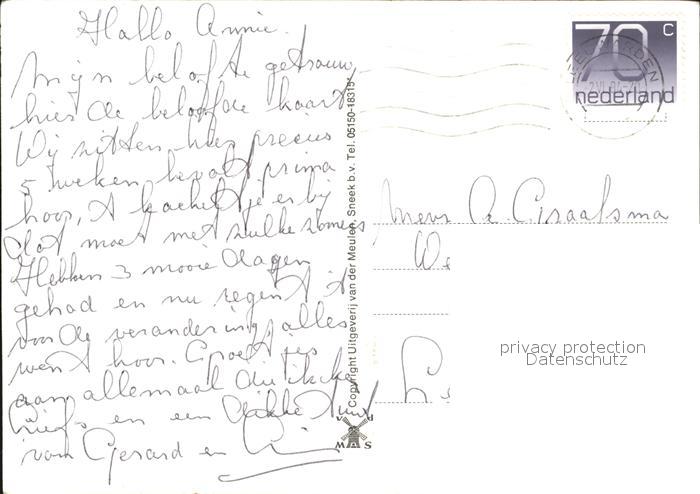 Hallo Annie.
Mijn belofte getrouw,
hier de beloofde kaart.
Wij zitten hier precies
5 weken, bevalt prima
hoor, 't kacheltje er bij
dat moet met zulke zomers
Hebben 3 mooie dagen
gehad en nu regent it
voor de verandering, alles
went hoor. Groetjes
aan allemaal
liefs en een dikke
van Gerard en
Copyright Uitgeverij van der Meulen, Sneek b.v. Tel. 05150-18315
v d
M A S
70 c
nederland
Mevr A. Graafsma
We
Le
privacy protection
Datenschutz